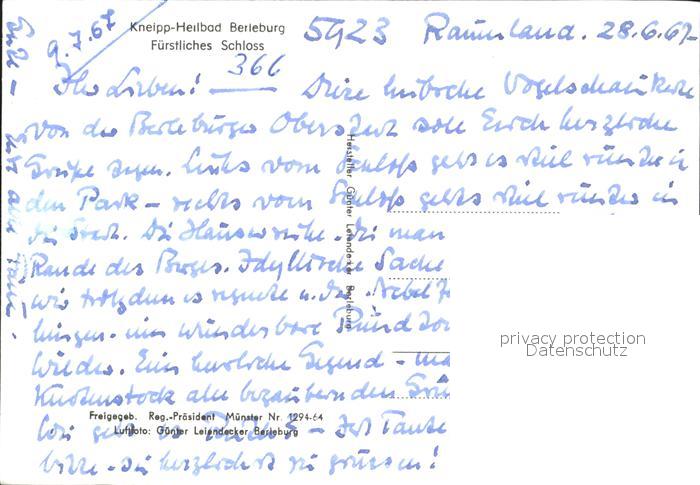 Kneipp-Heilbad Berleburg
Fürstliches Schloss
5923 Raumland. 28.6.67
9.7.67
366
Ihr Lieben! Diese hübsche Vogelschaukarte
von der Berleburger Oberstadt soll Euch herzliche
Grüße sagen. Links vom Schloß geht es steil runter in
den Park – rechts vom Schloß gehts steil runter in
die Stadt. Die Häuserreihe. Die man
Rande des Berges. Idyllische Sache
wir trotzdem es regnete u. der Nebel
hingen. ein wunderbare Rund
Wilder. Eine herrliche Gegend –
alle bezaubernden
Freigegeb. Reg.-Präsident Münster Nr. 1294-64
Luftfoto: Günter Leiendecker Berleburg
geht es – Tante
bitte – sie herzlichst zu grüssen!
Hersteller Günter Leiendecker Berleburg
privacy protection
Datenschutz